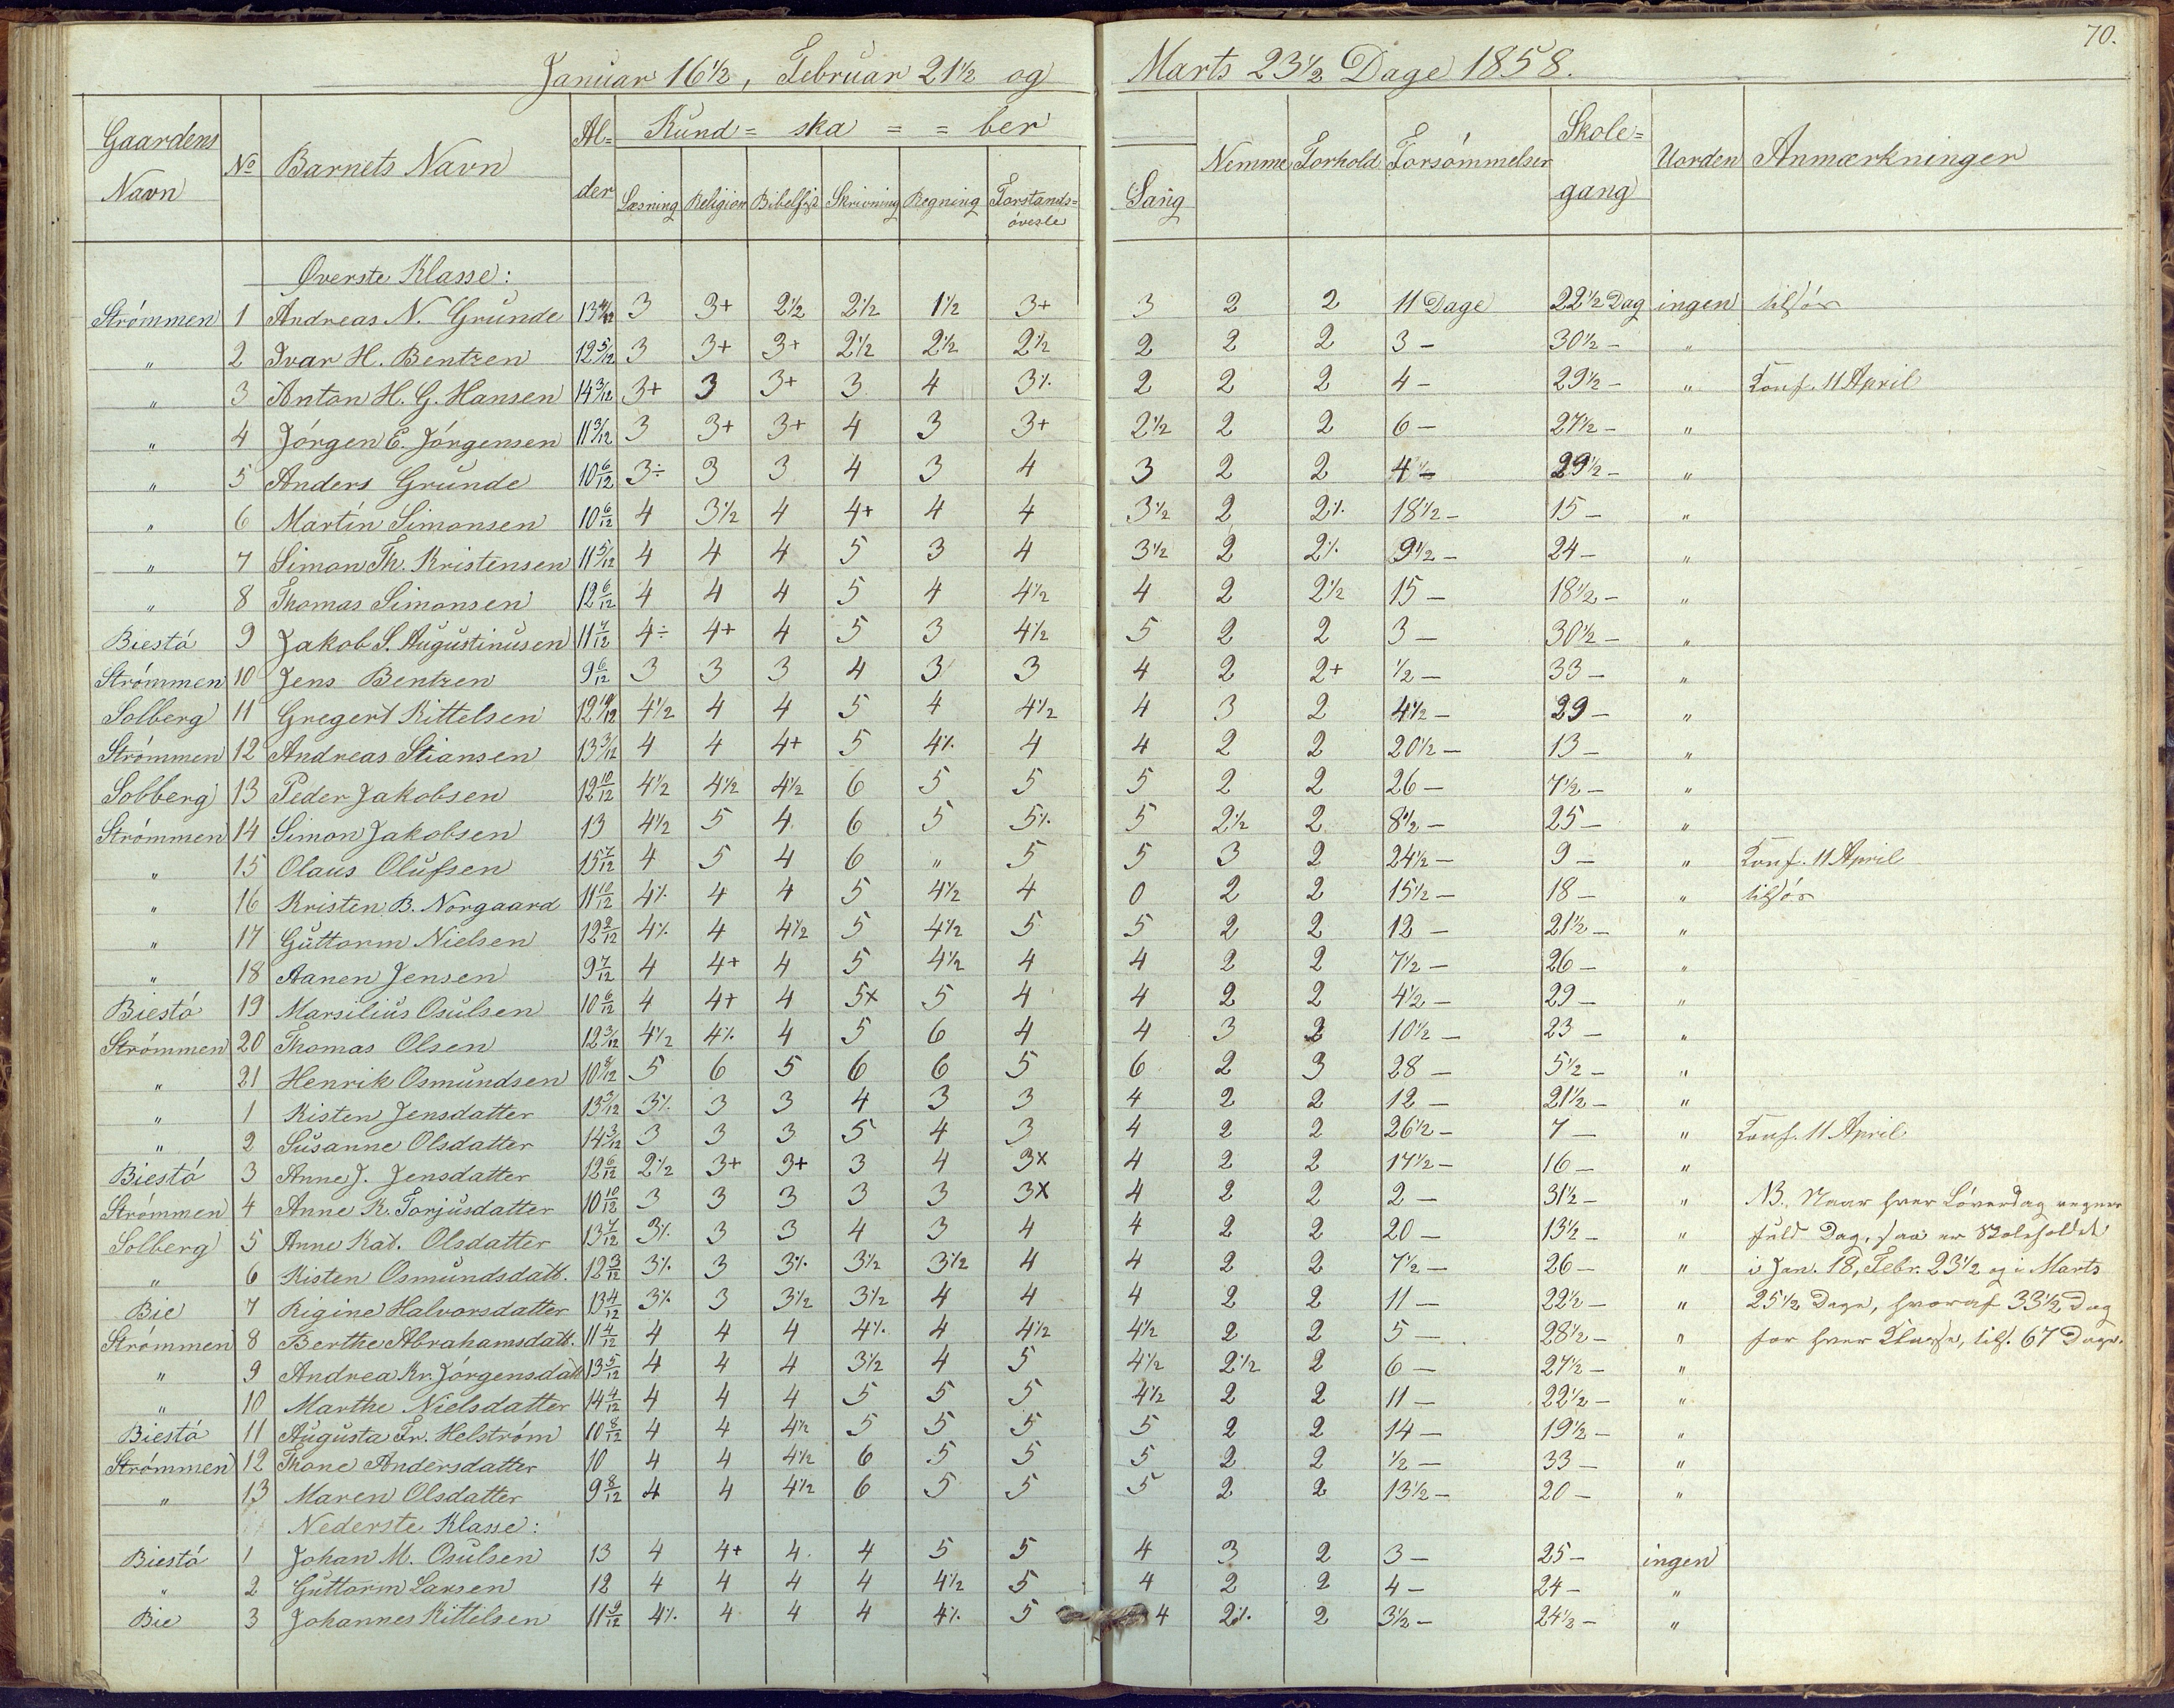 70.
Januar 16 1/2, Februar 21 1/2 og Marts 23 1/2 Dage 1858.
Gaardens Navn | No | Barnets Navn | Al=der | Kund=ska==ber | Læsning | Religion | Bibelhist | Skrivning | Regning | Forstandsövelse | Sang | Nemme | Forhold | Forsömmelser | Skole=gang | Uorden | Anmærkninger
Øverste Klasse:
Strömmen 1 Andreas N. Grunde 13 4/12 3 3+ 2 1/2 2 1/2 1 1/2 3+ 3 2 2 11 Dage 22 1/2 Dag ingen
" 2 Ivar H. Bentzen 12 5/12 3 3+ 3+ 2 1/2 2 1/2 2 1/2 2 2 2 3 – 30 1/2 – "
" 3 Anton H. G. Hansen 14 3/12 3+ 3 3+ 3 4 3% 2 2 2 4 – 29 1/2 – " Konf. 11 April
" 4 Jörgen E. Jörgensen 11 3/12 3 3+ 3+ 4 3 3+ 2 1/2 2 2 6 – 27 1/2 – "
" 5 Anders Grunde 10 6/12 3÷ 3 3 4 3 4 3 2 2 4 – 29 1/2 – "
" 6 Martin Simonsen 10 6/12 4 3 1/2 4 4+ 4 4 3 1/2 2 2% 18 1/2 – 15 – "
" 7 Simon Th. Kristensen 11 5/12 4 4 4 5 3 4 3 1/2 2 2% 9 1/2 – 24 – "
" 8 Thomas Simonsen 12 6/12 4 4 4 5 4 4 1/2 4 2 2 1/2 15 – 18 1/2 – "
Biestö 9 Jakob S. Augustinusen 11 7/12 4÷ 4+ 4 5 3 4 1/2 5 2 2 3 – 30 1/2 – "
Strömmen 10 Jens Bentzen 9 6/12 3 3 3 4 3 3 4 2 2+ 1/2 – 33 – "
Solberg 11 Gregert Kittelsen 12 10/12 4 1/2 4 4 5 4 4 1/2 4 3 2 4 1/2 – 29 – "
Strömmen 12 Andreas Stiansen 13 3/12 4 4 4+ 5 4% 4 4 2 2 20 1/2 – 13 – "
Solberg 13 Peder Jakobsen 12 10/12 4 1/2 4 1/2 4 1/2 6 5 5 5 2 2 26 – 7 1/2 – "
Strömmen 14 Simon Jakobsen 13 4 1/2 5 4 6 5 5% 5 2 1/2 2 8 1/2 – 25 – "
" 15 Olaus Olufsen 15 7/12 4 5 4 6 " 5 5 3 2 24 1/2 – 9 – " Konf. 11 April
" 16 Kristen B. Norgaard 11 10/12 4% 4 4 5 4 1/2 4 0 2 2 15 1/2 – 18 – "
" 17 Guttorm Nielsen 12 2/12 4% 4 4 1/2 5 4 1/2 5 5 2 2 12 – 21 1/2 – "
" 18 Aanen Jensen 9 7/12 4 4+ 4 5 4 1/2 4 4 2 2 7 1/2 – 26 – "
Biestö 19 Marsilius Osulsen 10 6/12 4 4+ 4 5x 5 4 4 2 2 4 1/2 – 29 – "
Strömmen 20 Thomas Olsen 12 3/12 4 1/2 4% 4 5 6 4 4 3 2 10 1/2 – 23 – "
" 21 Henrik Osmundsen 10 8/12 5 6 5 6 6 5 6 2 3 28 – 5 1/2 – "
" 1 Kisten Jensdatter 13 3/12 3% 3 3 4 3 3 4 2 2 12 – 21 1/2 – "
" 2 Susanne Olsdatter 14 3/12 3 3 3 5 4 3 4 2 2 26 1/2 – 7 – " Konf. 11 April
Biestö 3 Anne J. Jensdatter 12 6/12 2 1/2 3+ 3+ 3 4 3x 4 2 2 17 1/2 – 16 – "
Strömmen 4 Anne K. Torjusdatter 10 10/12 3 3 3 3 3 3x 4 2 2 2 – 31 1/2 – " NB. Naar hver Löverdag regnes
Solberg 5 Anne Kat. Olsdatter 13 7/12 3% 3 3 4 3 4 4 2 2 20 – 13 1/2 – " fuld Dag, saa er Skoleholdet
" 6 Kisten Osmundsdatt. 12 3/12 3% 3 3% 3 1/2 3 1/2 4 4 2 2 7 1/2 – 26 – " i Jan. 18, Febr. 23 1/2 og i Marts
Bie 7 Rigine Halvorsdatter 13 4/12 3% 3 3 1/2 3 1/2 4 4 4 2 2 11 – 22 1/2 – " 25 1/2 Dage, hvoraf 33 1/2 Dag
Strömmen 8 Berthe Abrahamsdatt. 11 4/12 4 4 4 4% 4 4 1/2 4 1/2 2 2 5 – 28 1/2 – " for hver Klasse, tils. 67 Dage.
" 9 Andrea Kr. Jörgensdatt 13 5/12 4 4 4 3 1/2 4 5 4 1/2 2 1/2 2 6 – 27 1/2 – "
" 10 Marthe Nielsdatter 14 4/12 4 4 4 5 5 5 4 1/2 2 2 11 – 22 1/2 – "
Biestö 11 Augusta Fr. Helström 10 8/12 4 4 4 1/2 5 5 5 5 2 2 14 – 19 1/2 – "
Strömmen 12 Thone Andersdatter 10 4 4 4 1/2 6 5 5 5 2 2 1/2 – 33 – "
" 13 Maren Olsdatter 9 8/12 4 4 4 1/2 6 5 5 5 2 2 13 1/2 – 20 – "
Nederste Klasse:
Biestö 1 Johan M. Osulsen 13 4 4+ 4 4 5 5 4 3 2 3 – 25 – ingen
" 2 Guttorm Larsen 12 4 4 4 4 4 1/2 5 4 2 2 4 – 24 – "
Bie 3 Johannes Kittelsen 11 9/12 4% 4 4 4 4% 5 4 2% 2 3 1/2 – 24 1/2 – "